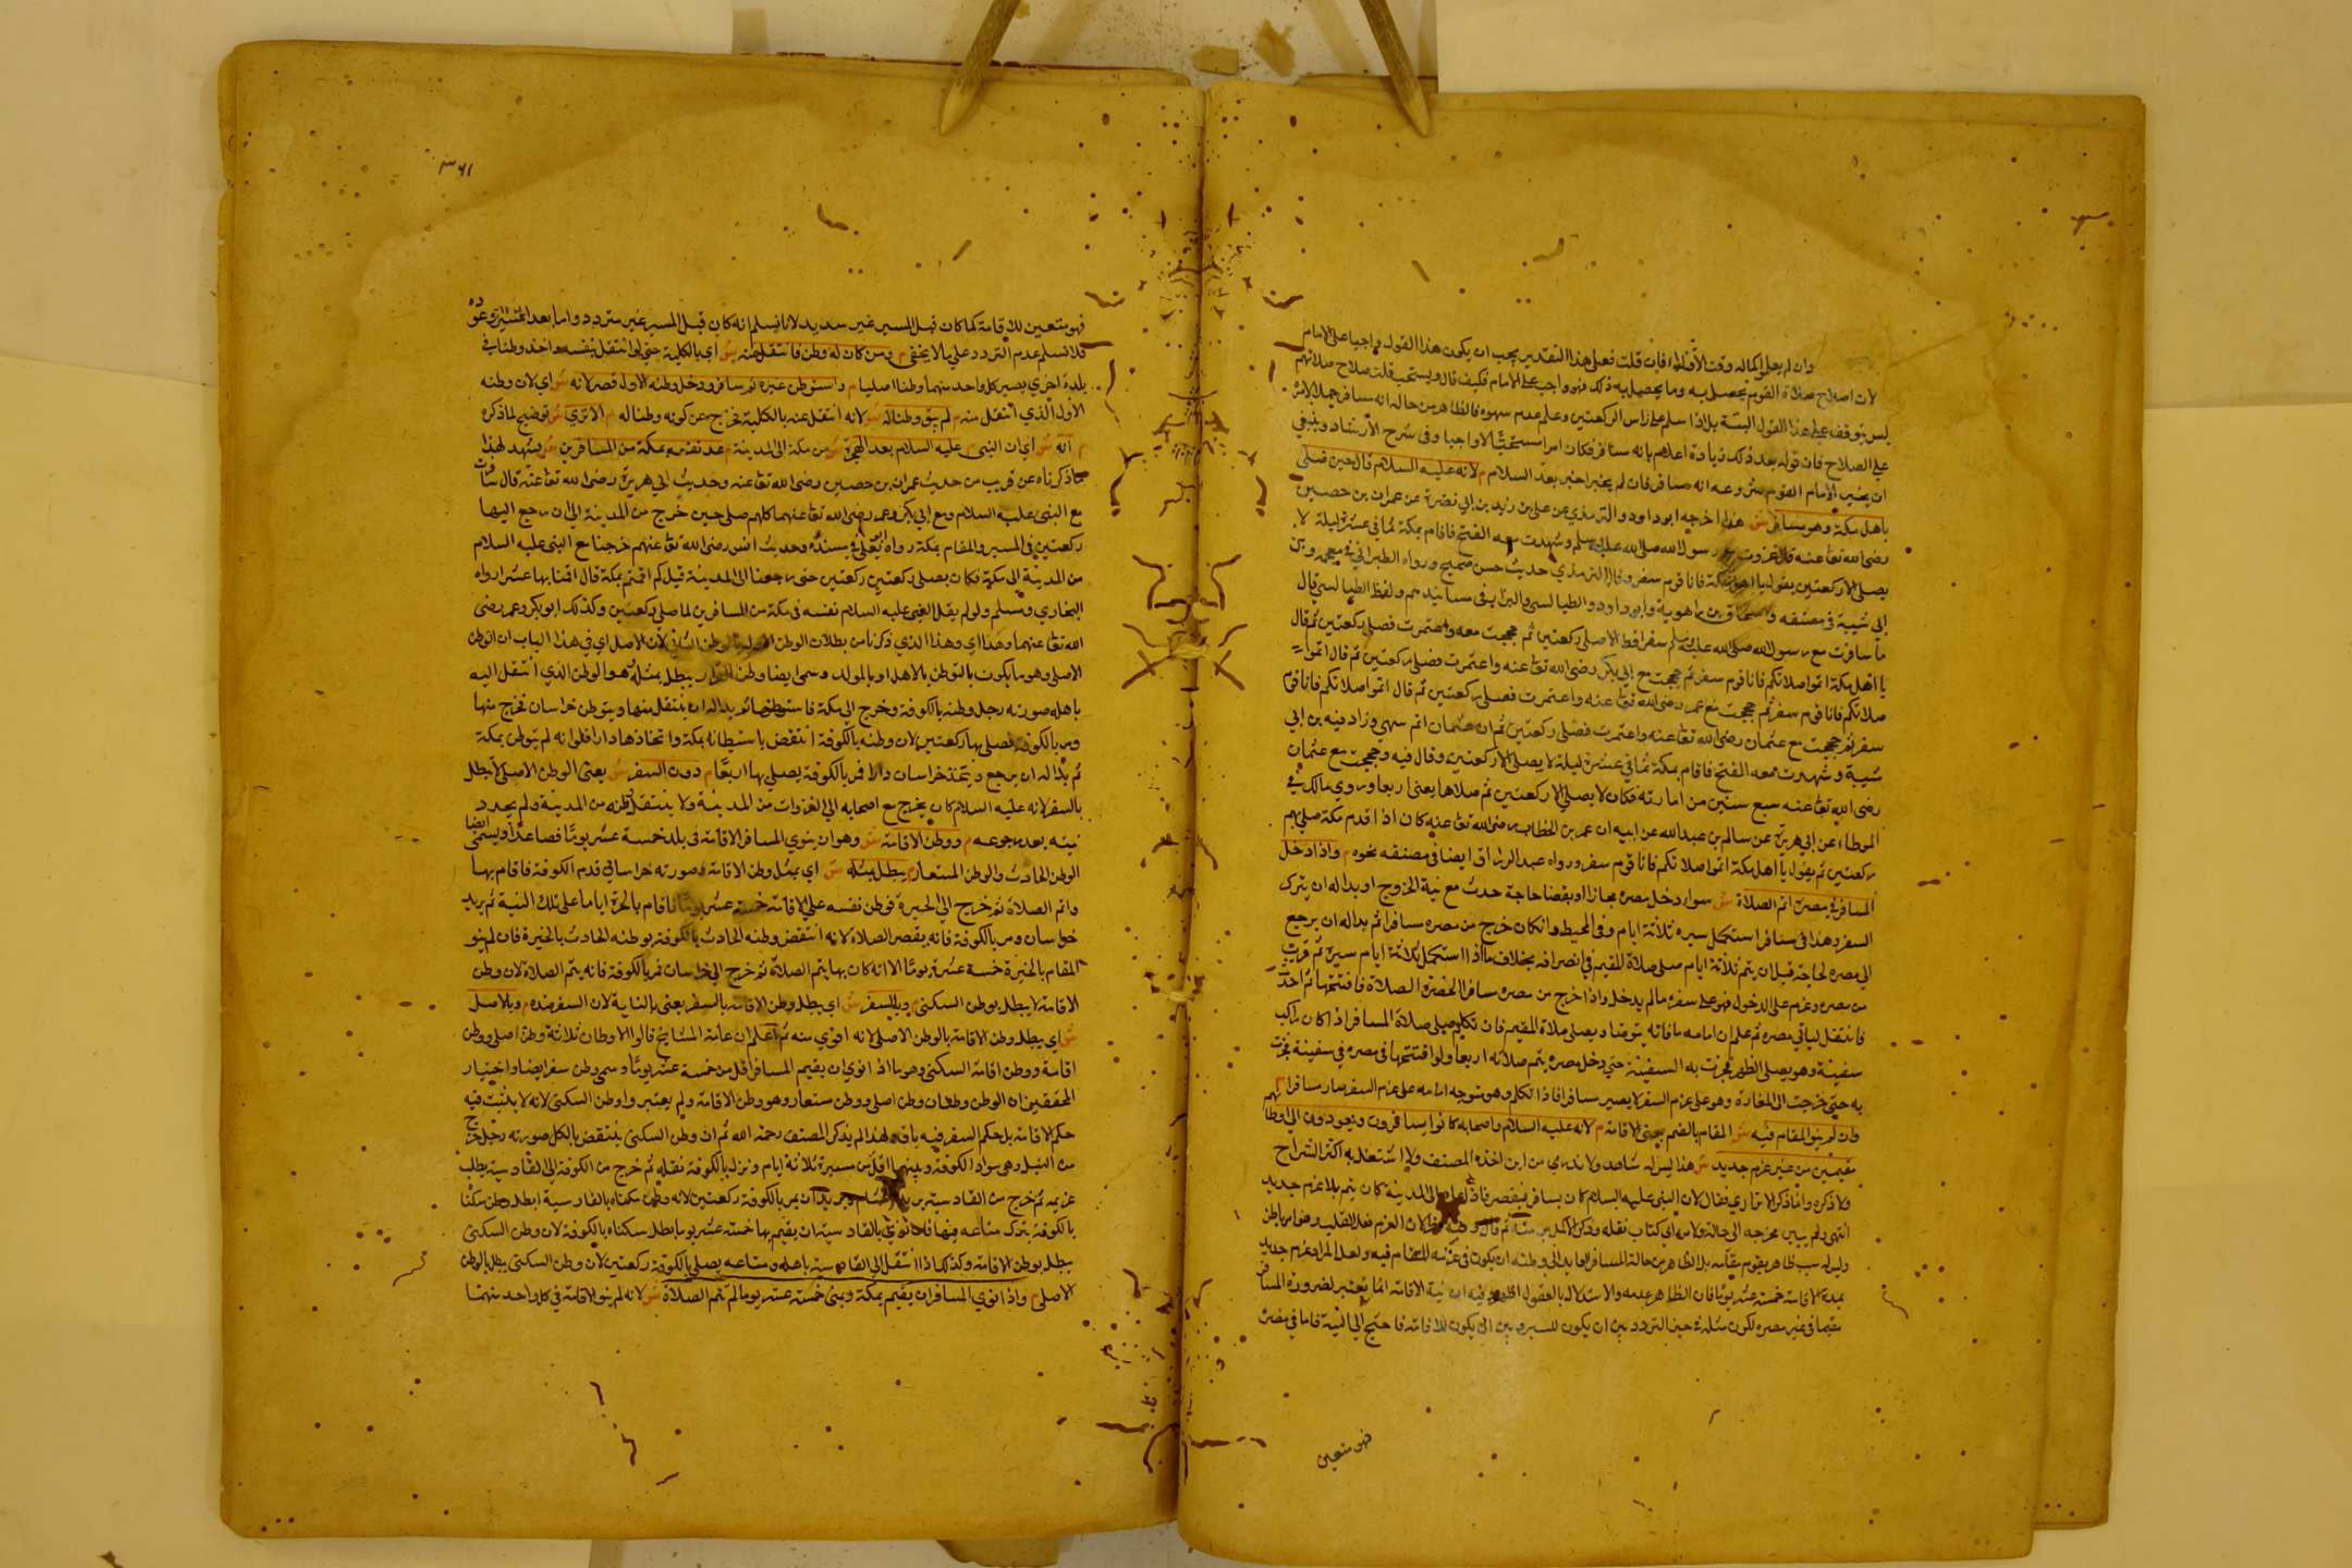 وان لم يعلموا كماله وقت الاقتداء فان قلت فعلى هذا التقدير يجب ان يكون هذا القول واجبا على الامام
لان اصلاح صلاة القوم يحصل به وما يحصل به ذلك فهو واجب على الامام فكيف قال ويستحب قلت صلاح صلاتهم
ليس يتوقف على هذا القول البتة بل اذا سلم على راس الركعتين وعلم عدم سهوه فالظاهر من حاله انه مسافر حملا لامره
على الصلاح فان قوله بعد ذلك زيادة اعلام بانه مسافر فكان امرا مستحبا لا واجبا وفى شرح الارشاد وينبغي
ان يخبر الامام القوم شروعه انه مسافر فان لم يخبر اخبر بعد السلام م لانه عليه السلام قال حين صلى
باهل مكة وهو مسافر ش هذا اخرجه ابو داود والترمذي عن على بن زيد بن ابي نضرة عن عمران بن حصين
رضى الله تعا عنه قال غزوت مع رسول الله صلى الله عليه وسلم وشهدت معه الفتح فاقام بمكة ثماني عشرة ليلة لا
يصلى الا ركعتين يقول يا اهل مكة فانا قوم سفر وقال الترمذي حديث حسن صحيح ورواه الطبراني في معجمه وابن
ابي شيبة فى مصنفه واسحاق بن راهوية وابو داود الطيالسى والبزار فى مسانيدهم ولفظ الطيالسى قال
ما سافرت مع رسول الله صلى الله عليه وسلم سفرا قط الا صلى ركعتين ثم حججت معه واعتمرت فصلى ركعتين ثم قال
يا اهل مكة اتموا صلاتكم فانا قوم سفر ثم حججت مع ابي بكر رضى الله تعا عنه واعتمرت فصلى ركعتين ثم قال اتموا
صلاتكم فانا قوم سفر ثم حججت مع عمر رضى الله تعا عنه واعتمرت فصلى ركعتين ثم قال اتموا صلاتكم فانا قوم
سفر ثم حججت مع عثمان رضى الله تعا عنه واعتمرت فصلى ركعتين ثم ان عثمان اتم سهي وزاد فيه بن ابي
شيبة وشهدت معه الفتح فاقام بمكة ثماني عشرة ليلة لا يصلى الا ركعتين وقال فيه وحججت مع عثمان
رضى الله تعا عنه سبع سنين من امارته فكان لا يصلى الا ركعتين ثم صلاها بمنى اربعا وروي مالك في
الموطاء عن ابي هريرة عن سالم بن عبد الله عن ابيه ان عمر بن الخطاب رضى الله تعا عنه كان اذا قدم مكة صلى بهم
ركعتين ثم يقول يا اهل مكة اتموا صلاتكم فانا قوم سفر ورواه عبد الرزاق ايضا فى مصنفه نحوه م واذا دخل
المسافر في مصره اتم الصلاة ش سواء دخل مصره مجتازا او بقضا حاجة حدث مع نية الخروج او بدا له ان يترك
السفر وهذا فى مسافر استكمل سيره ثلاثة ايام وفى المحيط وان كان خرج من مصره مسافرا ثم بدا له ان يرجع
الى مصره لحاجة قبل ان يتم ثلاثة ايام صلى صلاة المقيم في انصرافه بخلاف ما اذا استكمل ثلاثة ايام سيره ثم قرب
من مصره وعزم على الدخول فهو على سفره ما لم يدخل واذا خرج من مصره مسافرا لحضرة الصلاة فافتتحها ثم احدث
فانتقل لياتي مصره ثم علم ان امامه ما فانه يتوضا ويصلى صلاة المقيم فان تكلم صلى صلاة المسافر اذا كان راكب
سفينة وهو يصلى الظهر فجرت به السفينة حتى دخل مصره يتم صلاته اربعا ولو افتتحها فى مصره فى سفينة فجرت
به حتى خرجت الى المفازة وهو على عزم السفر لا يصير مسافرا فاذا تكلم وهو متوجه امامه على عزم السفر صار مسافرا م
وان لم ينو المقام فيه ش المقام بالضم بمعنى الاقامة م لانه عليه السلام واصحابه كانوا يسافرون ويعودون الى اوطانهم
مقيمين من غير عزم جديد ش هذا ليس له شاهد ولا ندري من اين اخذه المصنف ولا اشتغل به اكثر الشراح
ولا ذكره وانما ذكر الاترازي فقال لان النبى عليه السلام كان يسافر فيقصر فاذا عاد الى المدينة كان يتم بلا عزم جديد
انتهى ولم يبين مخرجه الى حاله ولا من اي كتاب نقله وذكر الاكمل من منه ثم قال وفيه نظر لان العزم فعل القلب وهو امر باطن
وليس له سبب ظاهر يقوم مقامه بل الظاهر من حالة المسافر العايد الى وطنه ان يكون فى عزمه المقام فيه ولعل المراد عزم جديد
بمدة الاقامة خمسة عشر يوما فان الظاهر عدمه والاستدلال بالعقول فيه ان نية الاقامة انما يعتبر لضرورة المسافر
مقيما فى غير مصره لكون مثله في حيز التردد بين ان يكون للسير وبين ان يكون للاقامة فاحتيج الى النية فاما فى مصره
فهو متعين
٣٦١
فهو متعين للاقامة كما كان قبل المسير غير سديد لانا نسلم انه كان قبل المسير غير متردد واما بعد المسير وعوده
فلا نسلم عدم التردد على ما لا يخفى م ومن كان له وطن فانتقل عنه ش اي بالكلية حتى لو انتقل بنفسه واخذ وطنا في
بلدة اخري يصير كل واحد منهما وطنا اصليا م واستوطن غيره ثم سافر ودخل وطنه الاول قصر لانه ش اي لان وطنه
الاول الذي انتقل منه م لم يبق وطنا له ش لانه انتقل عنه بالكلية فخرج عن كونه وطنا له م الا تري ش توضيح لما ذكره
م انه ش اي ان النبى عليه السلام بعد الهجرة ش من مكة الى المدينة م عد نفسه بمكة من المسافرين ش يشهد لهذا
ما ذكرناه عن قريب من حديث عمران بن حصين رضى الله تعا عنه وحديث ابي هريرة رضى الله تعا عنه قال سافرت
مع النبى عليه السلام ومع ابي بكر وعمر رضى الله تعا عنهما كلهم صلى حين خرج من المدينة الى ان رجع اليها
ركعتين في المسير والمقام بمكة رواه ابو يعلى في مسنده وحديث انس رضى الله تعا عنهم خرجنا مع النبى عليه السلام
من المدينة الى مكة فكان يصلى ركعتين ركعتين حتى رجعنا الى المدينة قيل كم اقمتم بمكة قال اقمنا بها عشرا رواه
البخاري ومسلم ولو لم يقل النبى عليه السلام نفسه فى مكة من المسافرين لما صلى ركعتين وكذلك ابو بكر وعمر رضى
الله تعا عنهما وهذا اي وهذا الذي ذكرنا من بطلان الوطن الاول بالوطن الثاني لان الاصل اي في هذا الباب ان الوطن
الاصلى وهو ما يكون بالتوطن بالاهل او بالمولد وسمى ايضا وطن القرار يبطل بمثله هو الوطن الذي انتقل اليه
باهله صورته رجل وطنه بالكوفة وخرج الى مكة فاستوطنها ثم بدا له ان ينتقل منها ويتوطن خراسان فخرج منها
ومر بالكوفة فصلى بها ركعتين لان وطنه بالكوفة انتقض باستيطانه بمكة واتخاذها دارا فلو انه لم يتوطن بمكة
ثم بدا له ان يرجع ويتخذ خراسان دارا فمر بالكوفة يصلى بها اربعا م دون السفر ش يعنى الوطن الاصلى لا يبطل
بالسفر لانه عليه السلام كان يخرج مع اصحابه الى الغزوات من المدينة ولا ينتقل وطنه من المدينة ولم يجدد
نيته بعد رجوعه م ووطن الاقامة ش وهو ان ينوي المسافر الاقامة فى بلد خمسة عشر يوما فصاعدا ويسمى ايضا
الوطن الحادث والوطن المستعار م يبطل بمثله ش اي بمثل وطن الاقامة وصورته خراساني قدم الكوفة فاقام بها
واتم الصلاة ثم خرج الى الحيرة فوطن نفسه على الاقامة خمسة عشر يوما فاقام بالحيرة اياما على تلك النية ثم يريد
خراسان ومر بالكوفة فانه يقصر الصلاة لانه انتقض وطنه الحادث بالكوفة بوطنه الحادث بالحيرة فان لم ينو
المقام بالحيرة خمسة عشر يوما الا انه كان بها يتم الصلاة ثم خرج الى خراسان فمر بالكوفة فانه يتم الصلاة لان وطن
الاقامة لا يبطل بوطن السكنى م وبالسفر ش اي يبطل وطن الاقامة بالسفر يعنى بالنية لان السفر ضده م وبالاصل
ش اي يبطل وطن الاقامة بالوطن الاصلى لانه اقوي منه ثم اعلم ان عامة المشايخ قالوا الاوطان ثلاثة وطن اصلى ووطن
اقامة ووطن اقامة السكنى وهو ما اذا نوي ان يقيم المسافر اقل من خمسة عشر يوما وسمى وطن سفر ايضا واختيار
المحققين ان الوطن وطنان وطن اصلى ووطن مستعار وهو وطن الاقامة ولم يعتبروا وطن السكنى لانه لا يثبت فيه
حكم الاقامة بل حكم السفر فيه باق ولهذا لم يذكر المصنف رحمه الله ثم ان وطن السكنى ينتقض بالكل صورته رجل خرج
من النيل وهى سواد الكوفة وبينهما اقل من مسيرة ثلاثة ايام ونزل بالكوفة نقله ثم خرج من الكوفة الى القادسية يطلب
غريمه ثم خرج من القادسية يريد الشام ويريد ان يمر بالكوفة ركعتين لانه وطن سكناه بالقادسية ابطل وطن سكناه
بالكوفة بترك متاعه فيها فاما نوي بالقادسية ان يقيم بها خمسة عشر يوما بطل سكناه بالكوفة لان وطن السكنى
يبطل بوطن الاقامة وكذلك اذا انتقل الى القادسية باهله ومتاعه يصلى بالكوفة ركعتين لان وطن السكنى يبطل بالوطن
الاصلى م واذا نوي المسافر ان يقيم بمكة وبمنى خمسة عشر يوما لم يتم الصلاة ش لانه لم ينو الاقامة في كل واحد منهما